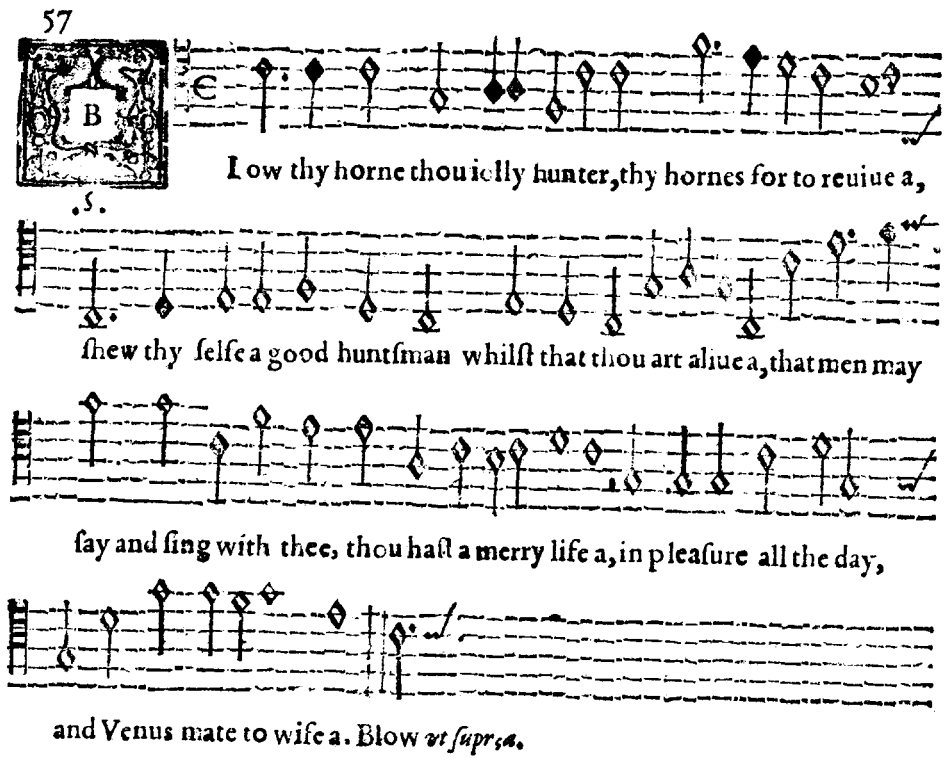 57
B
Low thy horne thou iolly hunter, thy hornes for to reuiue a,
.s.
ſhew thy ſelfe a good huntſman whilſt that thou art aliue a, that men may
ſay and ſing with thee, thou haſt a merry life a, in pleaſure all the day,
and Venus mate to wife a. Blow vt ſupr,a.